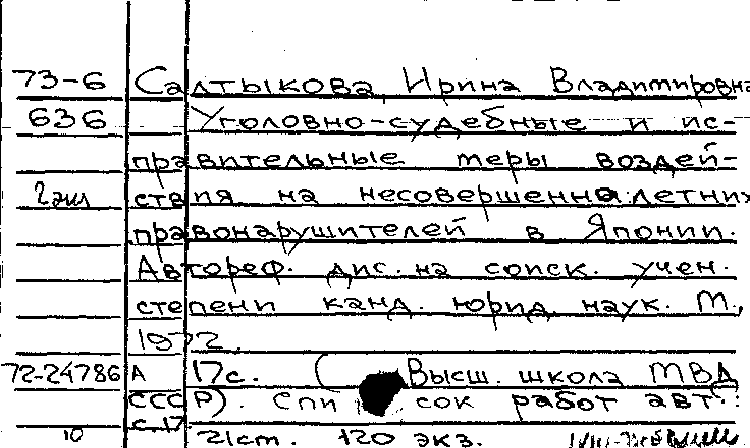 73-6 Салтыкова, Ирина Владимировна
636 Уголовно-судебные и ис-
правительные меры воздей-
2 экз ствия на несовершеннолетних
правонарушителей в Японии.
Автореф. дис. на соиск. учен.
степени канд. юрид. наук. М.,
1972.
72-24786 А 17 с. (Высш. школа МВД
СССР). Список работ авт.:
с. 17
10 21 ст. 120 экз.